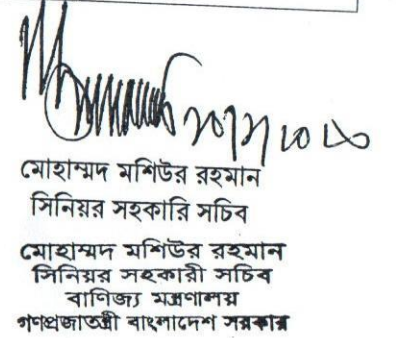 মোহাম্মদ মশিউর রহমান
সিনিয়র সহকারি সচিব
মোহাম্মদ মশিউর রহমান
সিনিয়র সহকারী সচিব
বাণিজ্য মন্ত্রণালয়
গণপ্রজাতন্ত্রী বাংলাদেশ সরকার